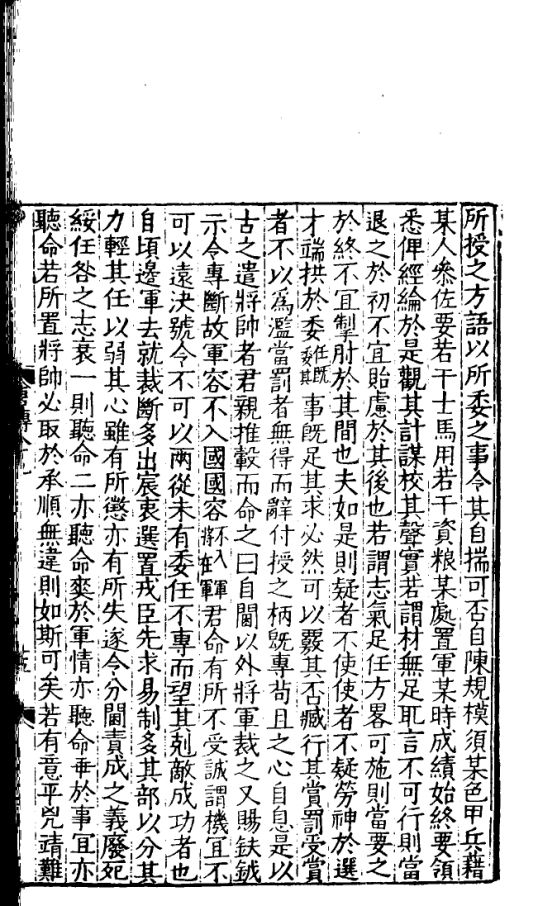 所授之方語以所委之事令其自揣可否自陳規模須某色甲兵藉
某人叅佐要若干士馬用若干資粮某處置軍某時成績始終要領
悉俾經綸於是觀其計謀校其聲實若謂材無足取言不可行則當
退之於初不宜貽慮於其後也若謂志氣足任方畧可施則當要之
於終不宜掣肘於其間也夫如是則疑者不使使者不疑勞神於選
才端拱於委任旣委其事旣足其求必然可以覈其否臧行其賞罰受賞
者不以為濫當罰者無得而辭付授之柄旣專苟且之心自息是以
古之遣將帥者君親推轂而命之曰自閫以外將軍裁之又賜鈇鉞
示令專斷故軍容不入國國容不入軍將在軍君命有所不受誠謂機宜不
可以遠決號令不可以兩從未有委任不專而望其剋敵成功者也
自頃邊軍去就裁斷多出宸衷選置戎臣先求易制多其部以分其
力輕其任以弱其心雖有所懲亦有所失遂令分閫責成之義廢死
綏任咎之志衰一則聽命二亦聽命爽於軍情亦聽命乖於事宜亦
聽命若所置將帥必取於承順無違則如斯可矣若有意平兇靖難